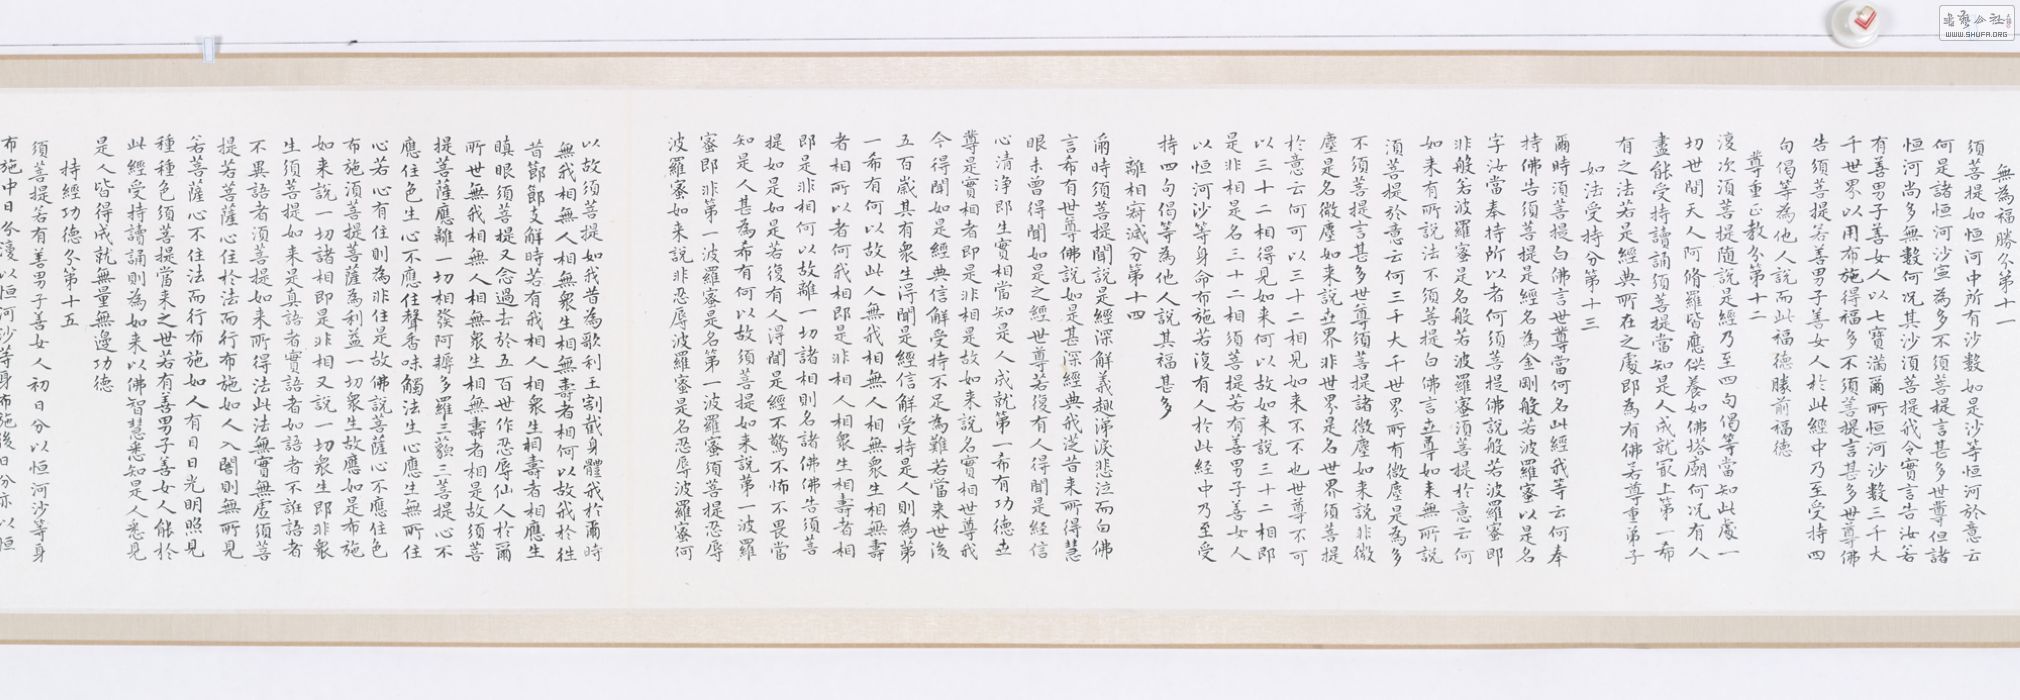 無為福勝分第十一
須菩提如恒河中所有沙數如是沙等恒河於意云
何是諸恒河沙寧為多不須菩提言甚多世尊但諸
恒河尚多無數何況其沙須菩提我今實言告汝若
有善男子善女人以七寶滿爾所恒河沙數三千大
千世界以用布施得福多不須菩提言甚多世尊佛
告須菩提若善男子善女人於此經中乃至受持四
句偈等為他人說而此福德勝前福德
尊重正教分第十二
復次須菩提隨說是經乃至四句偈等當知此處一
切世間天人阿脩羅皆應供養如佛塔廟何況有人
盡能受持讀誦須菩提當知是人成就冣上第一希
有之法若是經典所在之處即為有佛若尊重弟子
如法受持分第十三
爾時須菩提白佛言世尊當何名此經我等云何奉
持佛告須菩提是經名為金剛般若波羅蜜以是名
字汝當奉持所以者何須菩提佛說般若波羅蜜即
非般若波羅蜜是名般若波羅蜜須菩提於意云何
如来有所說法不須菩提白佛言世尊如来無所說
須菩提於意云何三千大千世界所有微塵是為多
不須菩提言甚多世尊須菩提諸微塵如来說非微
塵是名微塵如来說世界非世界是名世界須菩提
於意云何可以三十二相見如来不不也世尊不可
以三十二相得見如来何以故如来說三十二相即
是非相是名三十二相須菩提若有善男子善女人
以恒河沙等身命布施若復有人於此経中乃至受
持四句偈等為他人說其福甚多
離相寂滅分第十四
爾時須菩提聞說是經深解義趣涕淚悲泣而白佛
言希有世尊佛說如是甚深經典我從昔来所得慧
眼未曾得聞如是之經世尊若復有人得聞是経信
心清淨即生實相當知是人成就第一希有功德世
尊是實相者即是非相是故如来說名實相世尊我
今得聞如是經典信解受持不足為難若當来世後
五百歲其有衆生得聞是經信解受持是人則為第
一希有何以故此人無我相無人相無衆生相無壽
者相所以者何我相即是非相人相衆生相壽者相
即是非相何以故離一切諸相則名諸佛佛告須菩
提如是如是若復有人得聞是經不驚不怖不畏當
知是人甚為希有何以故須菩提如来說第一波羅
蜜即非第一波羅蜜是名第一波羅蜜須菩提忍辱
波羅蜜如来說非忍辱波羅蜜是名忍辱波羅蜜何
以故須菩提如我昔為歌利王割截身體我於爾時
無我相無人相無衆生相無壽者相何以故我於往
昔節節支解時若有我相人相衆生相壽者相應生
瞋眼須菩提又念過去於五百世作忍辱仙人於爾
所世無我相無人相無衆生相無壽者相是故須菩
提菩薩應離一切相發阿耨多羅三藐三菩提心不
應住色生心不應住聲香味觸法生心應生無所住
心若心有住則為非住是故佛說菩薩心不應住色
布施須菩提菩薩為利益一切衆生故應如是布施
如来說一切諸相即是非相又說一切衆生即非衆
生須菩提如来是真語者實語者如語者不誑語者
不異語者須菩提如来所得法此法無實無虛須菩
提若菩薩心住於法而行布施如人入闇則無所見
若菩薩心不住法而行布施如人有目日光明照見
種種色須菩提當来之世若有善男子善女人能於
此經受持讀誦則為如来以佛智慧悉知是人悉見
是人皆得成就無量無邊功德
持經功德分第十五
須菩提若有善男子善女人初日分以恒河沙等身
布施中日分復以恒河沙等身布施後日分亦以恒
書法公社
WWW.SHUFA.ORG